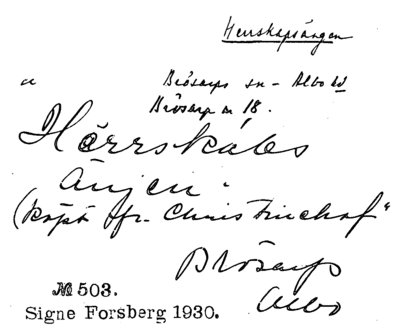 Herrskapsängen
"
Brösarps sn - Albo hd
Brösarp nr 18.
Hèrrskabs
änjen.
(köpt fr. Christinehof"
Brösarp
Albo
№ 503.
Signe Forsberg 1930.